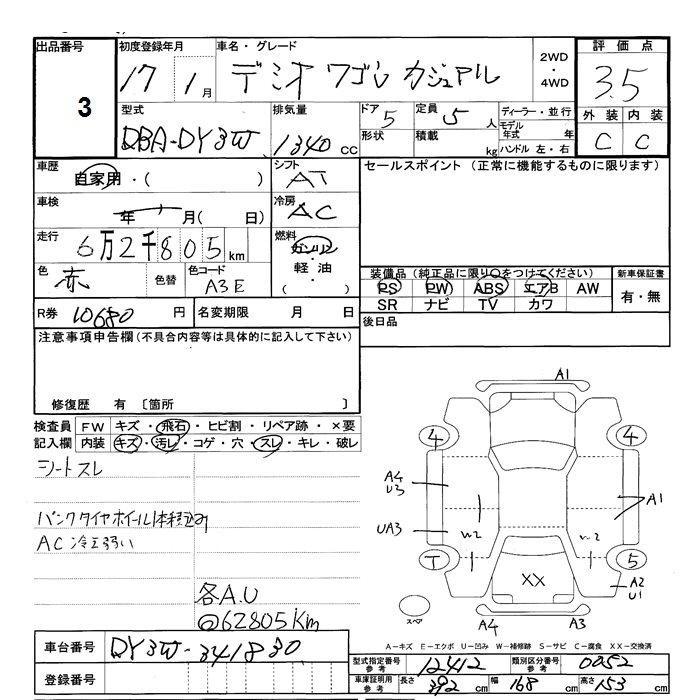 出品番号
3
初度登録年月
17 1月
車名・グレード
デミオ ワゴン カジュアル
2WD
・
4WD
評価点
3.5
外装 内装
C C
型式
DBA-DY3W
排気量
1340 CC
ドア 5
形状
定員 5 人
積載 kg
ディーラー・並行
モデル年式 年
ハンドル 左・右
車歴
自家用・( )
シフト
AT
車検
年 月( 日)
冷房
AC
走行
6万2千805km
燃料
ガソリン
・
軽油
・
( )
色
赤
色替
色コード
A3E
R券 10680 円
名変期限 月 日
セールスポイント (正常に機能するものに限ります)
装備品(純正品に限り○をつけてください)
PS PW ABS エアB AW
SR ナビ TV カワ
新車保証書
有・無
後日品
注意事項申告欄(不具合内容等は具体的に記入して下さい)
修復歴 有 〔箇所 〕
検査員記入欄
FW キズ・飛石・ヒビ割・リペア跡・×要
内装 キズ・汚レ・コゲ・穴・スレ・キレ・破レ
シートスレ
パンクタイヤホイール1本積込み
AC冷エ弱い
各A.U
@62805Km
A1
4 4
A4
U3
A1
UA3
W2 W2
T 5
XX
A2
U1
スペア
A4 A3
A-キズ E-エクボ U-凹み W-補修跡 S-サビ C-腐食 XX-交換済
車台番号 DY3W-341830
登録番号
型式指定番号
参考
12412
類別区分番号
参考
0052
車庫証明用
参考
長さ 392 cm 幅 168 cm 高さ 153 cm